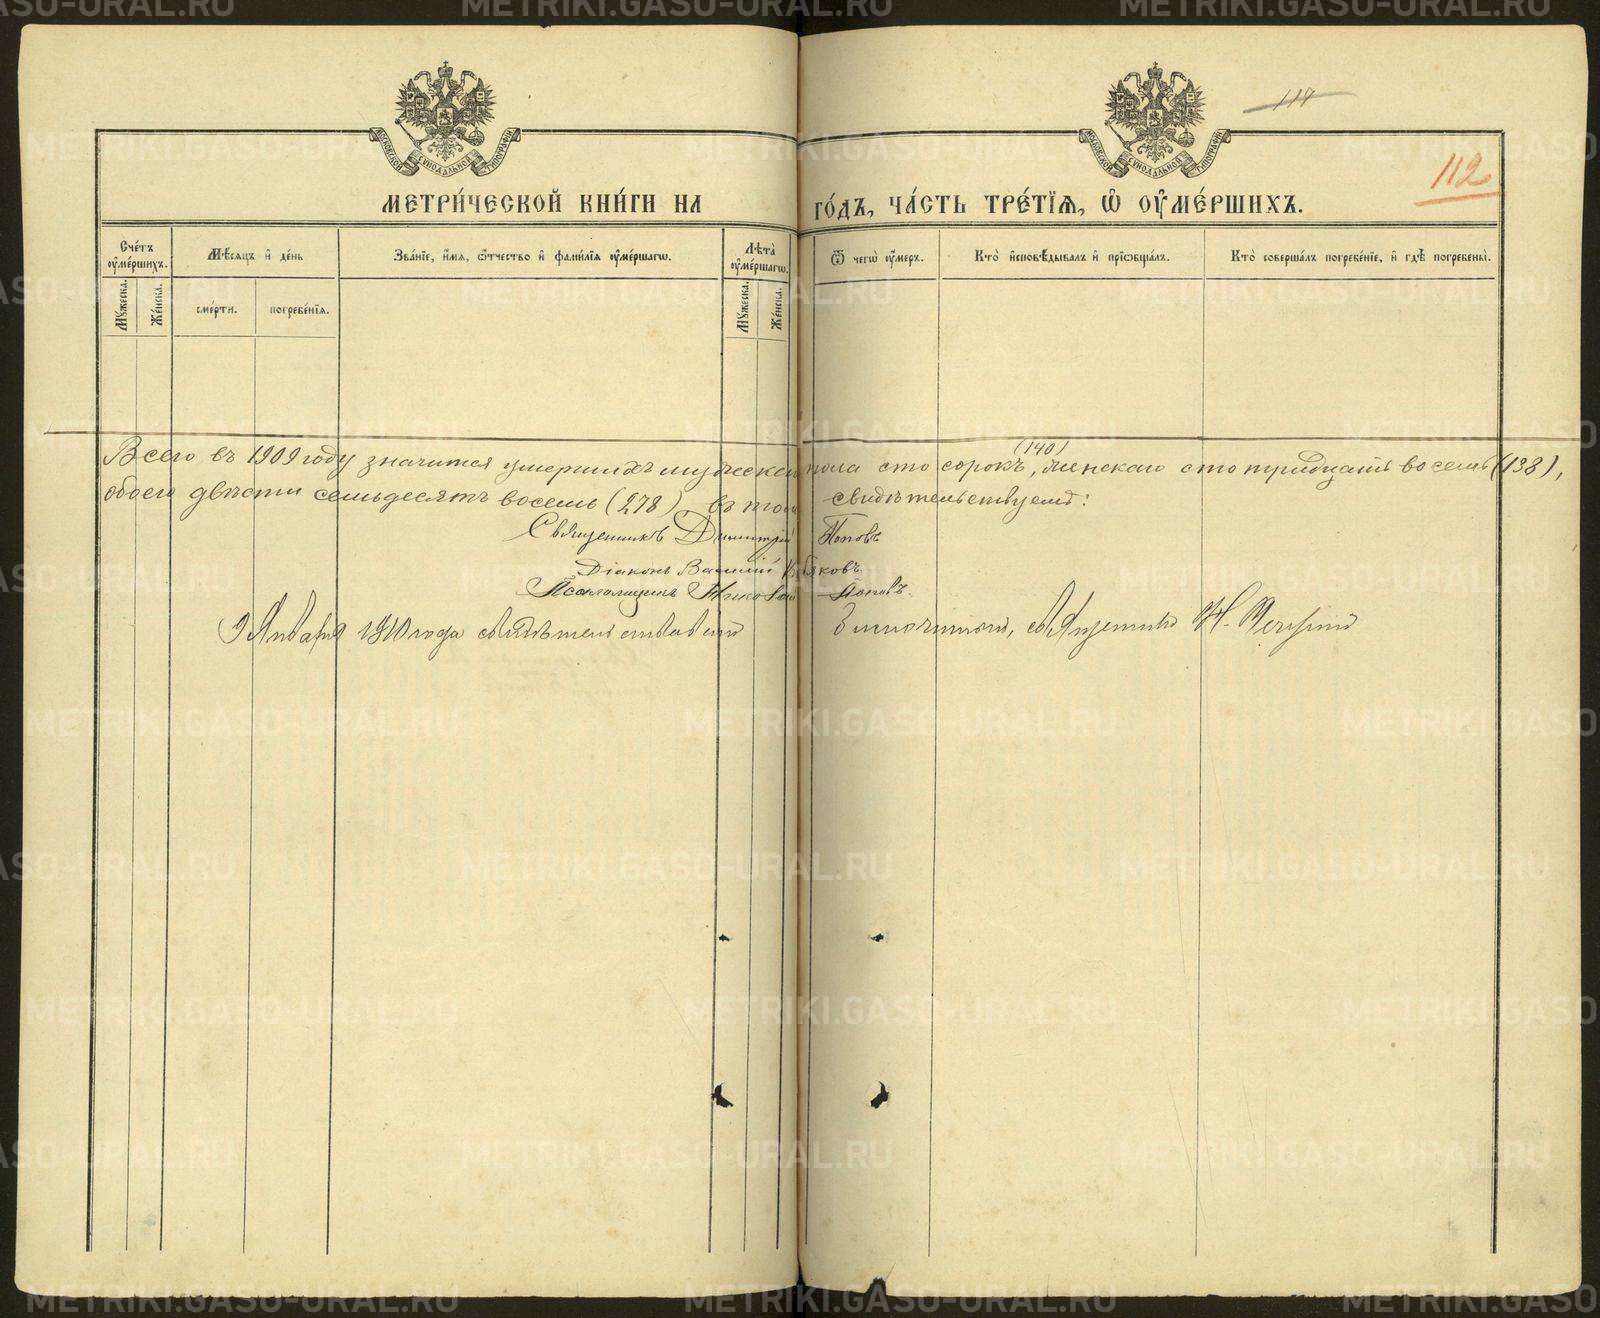 117
112
МОСКОВСКОЙ СѴНОДАЛЬНОЙ ТИПОГРАФІИ
МОСКОВСКОЙ СѴНОДАЛЬНОЙ ТИПОГРАФІИ
МЕТРИ́ЧЕСКОЙ КНИ́ГИ НА ГО́ДЪ, ЧА́СТЬ ТРЕ́ТЇѦ, Ѽ ОУ҆МЕ́РШИХЪ.
Сче́тъ оу҆ме́ршихъ.
Мѣ́сѧцъ и҆ де́нь
Зва́нїе, и҆́мѧ, ѻ҆́тчество и҆ фами́лїѧ оу҆ме́ршагѡ.
Лѣ̑та̀ оу҆ме́ршагѡ.
Ѿ чегѡ̀ оу҆́меръ.
Кто̀ и҆сповѣ́дывалъ и҆ прїѡбща́лъ.
Кто̀ соверша́лъ погребе́нїе, и҆ гдѣ̀ погребены̀.
Мꙋ́жеска.
Же́нска.
сме́рти.
погребе́нїѧ.
Мꙋ́жеска.
Же́нска.
Всего въ 1909 году значится умершихъ мужескаго пола сто сорокъ (140), женскаго сто тридцать восемь (138),
обоего двѣсти семьдесятъ восемь (278) въ томъ свидѣтельствуемъ:
Священникъ Димитрій Поповъ
Діаконъ Василій
Псаломщикъ Николай Поповъ
9 Января 1910 года свидѣтельствовалъ Благочинный, священникъ Н.
METRIKI.GASO-URAL.RU